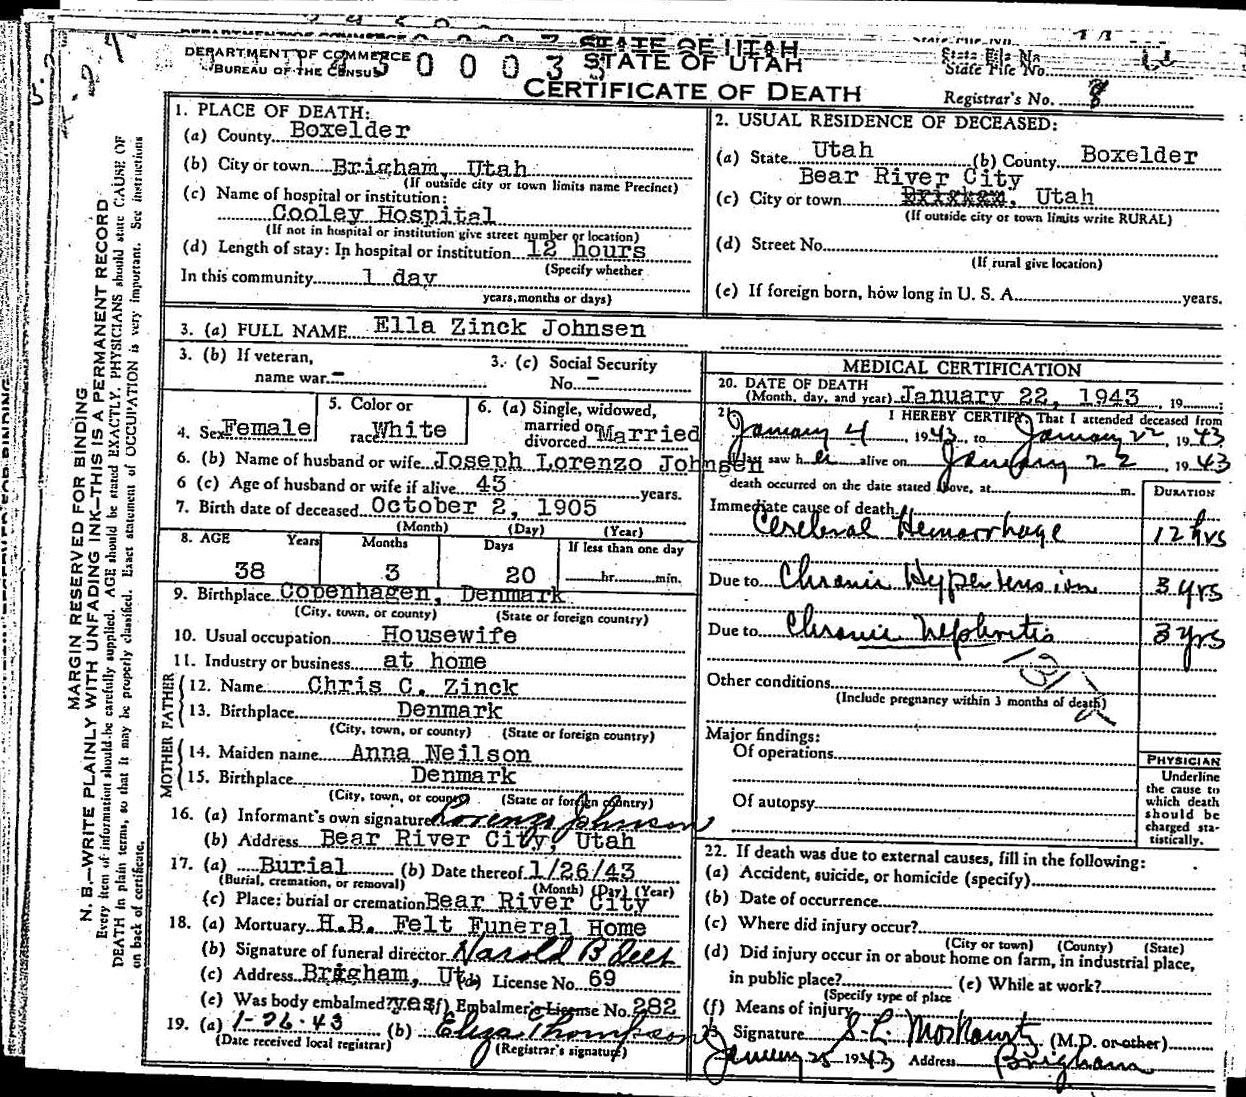 DEPARTMENT OF COMMERCE
BUREAU OF THE CENSUS
STATE OF UTAH
STATE OF UTAH
CERTIFICATE OF DEATH
State File No.
State File No.
Registrar's No. 8
MARGIN RESERVED FOR BINDING
N. B.—WRITE PLAINLY WITH UNFADING INK—THIS IS A PERMANENT RECORD
Every item of information should be carefully supplied. AGE should be stated EXACTLY. PHYSICIANS should state CAUSE OF
DEATH in plain terms, so that it may be properly classified. Exact statement of OCCUPATION is very important. See instructions
on back of certificate.
1. PLACE OF DEATH:
(a) County Boxelder
(b) City or town Brigham, Utah
(If outside city or town limits name Precinct)
(c) Name of hospital or institution:
Cooley Hospital
(If not in hospital or institution give street number or location)
(d) Length of stay: In hospital or institution 12 hours
(Specify whether
In this community 1 day
years, months or days)
2. USUAL RESIDENCE OF DECEASED:
(a) State Utah (b) County Boxelder
Bear River City
(c) City or town Brigham, Utah
(If outside city or town limits write RURAL)
(d) Street No.
(If rural give location)
(e) If foreign born, how long in U. S. A. years.
3. (a) FULL NAME Ella Zinck Johnsen
3. (b) If veteran,
name war –
3. (c) Social Security
No. –
4. Sex Female
5. Color or
race White
6. (a) Single, widowed,
married or
divorced Married
6. (b) Name of husband or wife Joseph Lorenzo Johnsen
6 (c) Age of husband or wife if alive 43 years.
7. Birth date of deceased October 2, 1905
(Month) (Day) (Year)
8. AGE Years Months Days If less than one day
38 3 20 hr. min.
9. Birthplace Copenhagen, Denmark
(City, town, or county) (State or foreign country)
10. Usual occupation Housewife
11. Industry or business at home
FATHER
12. Name Chris C. Zinck
13. Birthplace Denmark
(City, town, or county) (State or foreign country)
MOTHER
14. Maiden name Anna Neilson
15. Birthplace Denmark
(City, town, or county) (State or foreign country)
16. (a) Informant's own signature Lorenzo Johnson
(b) Address Bear River City, Utah
17. (a) Burial (b) Date thereof 1/26/43
(Burial, cremation, or removal) (Month) (Day) (Year)
(c) Place: burial or cremation Bear River City
18. (a) Mortuary H.B. Felt Funeral Home
(b) Signature of funeral director Harold B Felt
(c) Address Brigham, Ut. (d) License No. 69
(e) Was body embalmed? yes (f) Embalmer's License No. 282
19. (a) 1-26-43 (b) Eliza Thompson
(Date received local registrar) (Registrar's signature)
MEDICAL CERTIFICATION
20. DATE OF DEATH
(Month, day, and year) January 22, 1943, 19
21. I HEREBY CERTIFY, That I attended deceased from
January 4, 1943, to January 22, 1943
I last saw her alive on January 22 1943
death occurred on the date stated above, at m.
DURATION
Immediate cause of death
Cerebral Hemorrhage 12 hrs
Due to Chronic Hypertension 3 yrs
Due to Chronic Nephritis 3 yrs
Other conditions
(Include pregnancy within 3 months of death)
Major findings:
Of operations
Of autopsy
PHYSICIAN
Underline
the cause to
which death
should be
charged sta-
tistically.
22. If death was due to external causes, fill in the following:
(a) Accident, suicide, or homicide (specify)
(b) Date of occurrence
(c) Where did injury occur?
(City or town) (County) (State)
(d) Did injury occur in or about home on farm, in industrial place,
in public place? (e) While at work?
(Specify type of place
(f) Means of injury
23. Signature (M.D. or other)
January 25 1943 Address Brigham